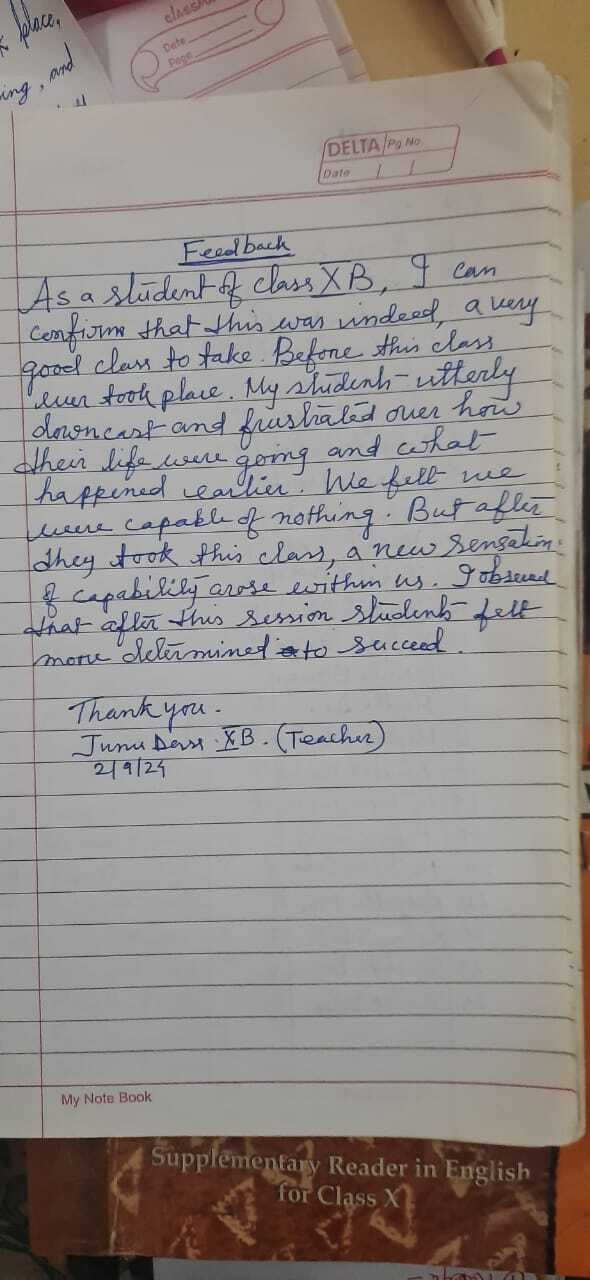 place,
ing, and
classm
Date
Page
DELTA Pg No
Date / /
Feedback
As a student of class XB, I can
confirm that this was indeed, a very
good class to take. Before this class
ever took place. My students utterly
downcast and frustrated over how
their life were going and what
happened earlier. We felt we
were capable of nothing. But after
they took this class, a new sensation
of capability arose within us. I observed
that after this session students felt
more determined to succeed.
Thank you.
Junu XB. (Teacher)
2/9/24
My Note Book
Supplementary Reader in English
for Class X